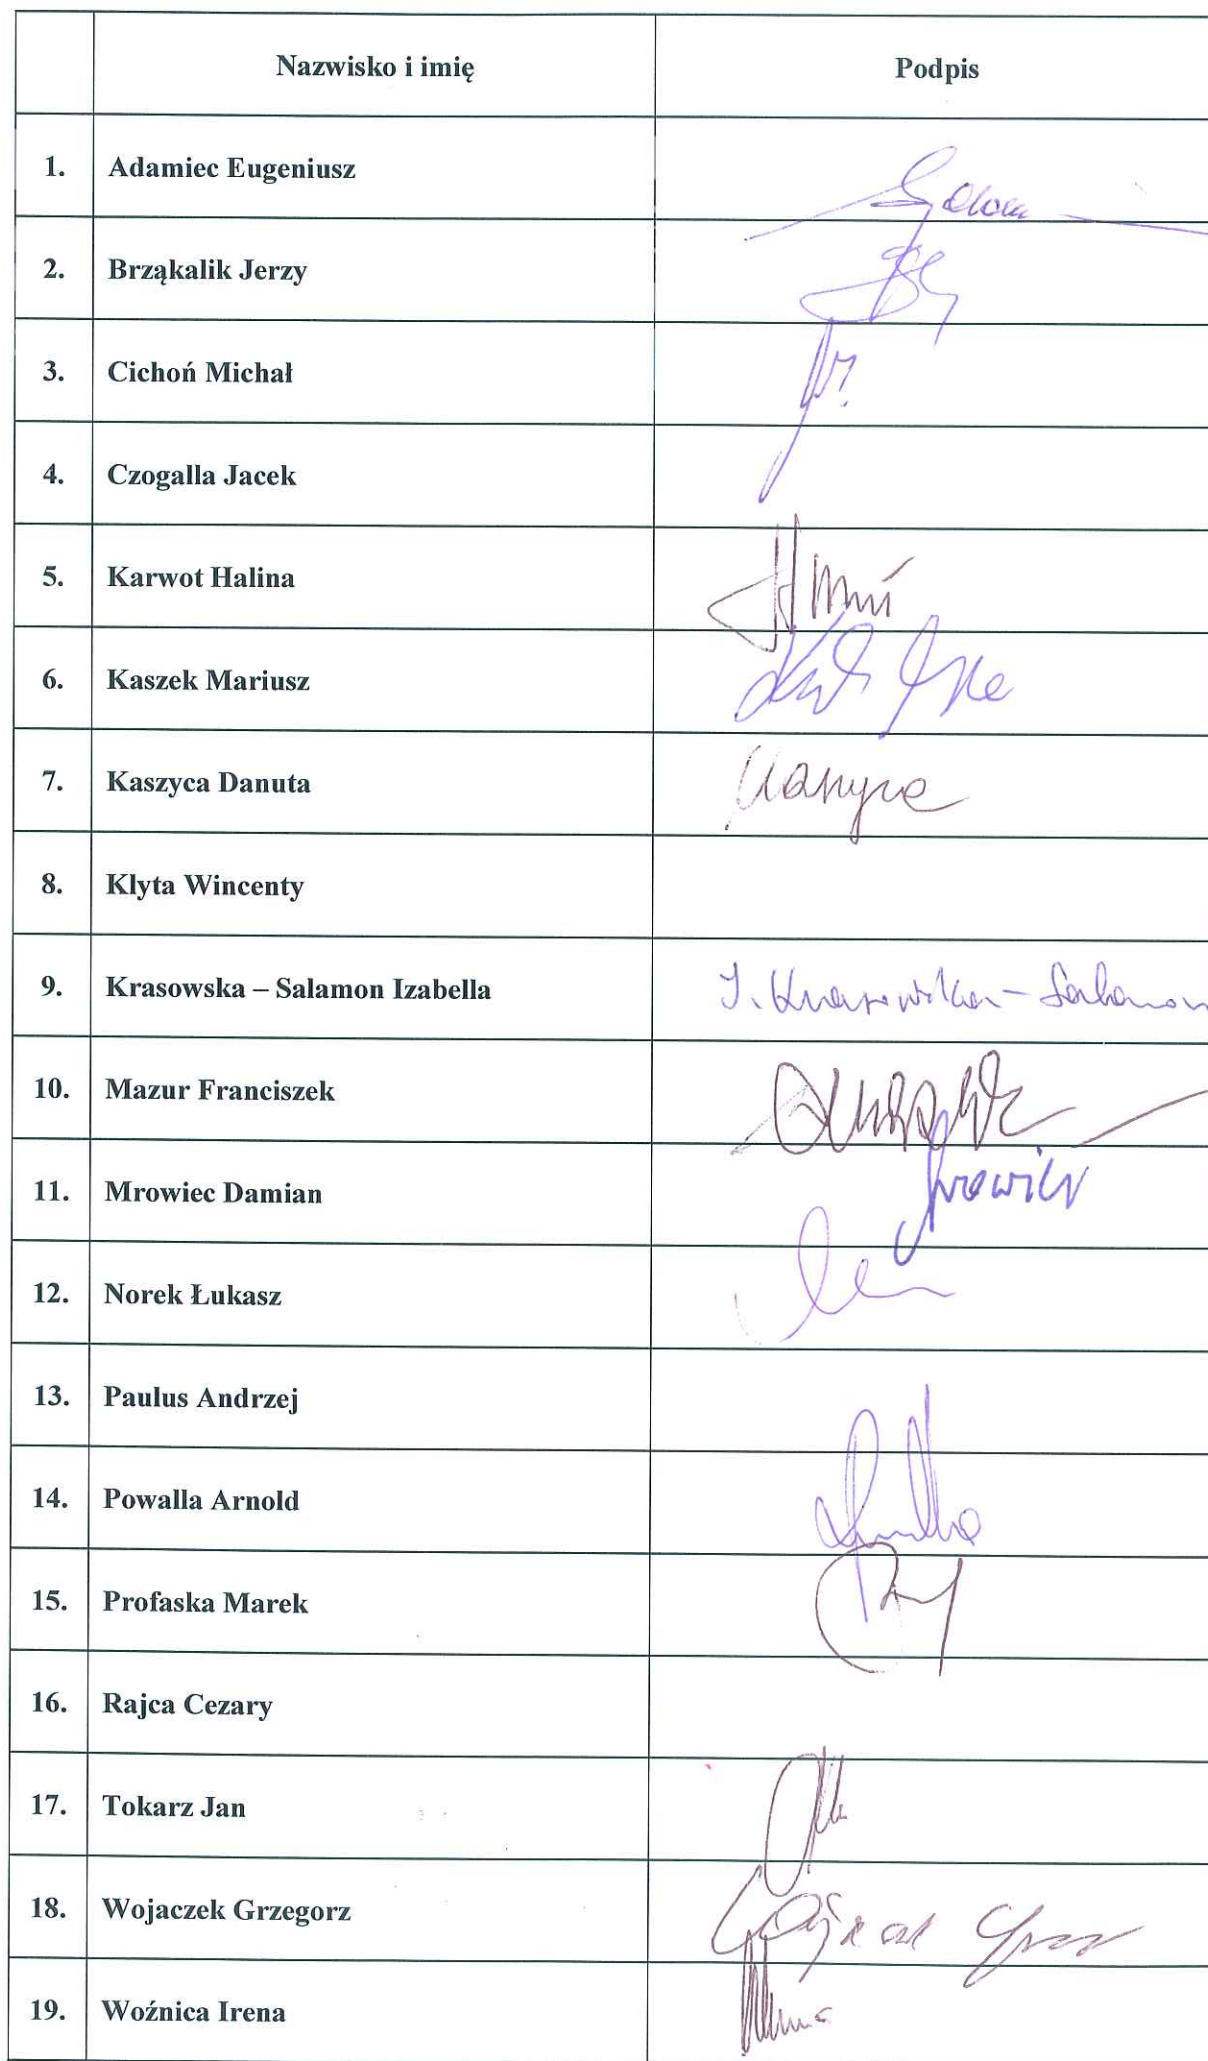 Nazwisko i imię Podpis
1. Adamiec Eugeniusz
2. Brząkalik Jerzy
3. Cichoń Michał
4. Czogalla Jacek
5. Karwot Halina
6. Kaszek Mariusz
7. Kaszyca Danuta Kaszyca
8. Klyta Wincenty
9. Krasowska – Salamon Izabella I. Krasowska - Salamon
10. Mazur Franciszek
11. Mrowiec Damian Mrowiec
12. Norek Łukasz
13. Paulus Andrzej
14. Powalla Arnold
15. Profaska Marek
16. Rajca Cezary
17. Tokarz Jan
18. Wojaczek Grzegorz
19. Woźnica Irena